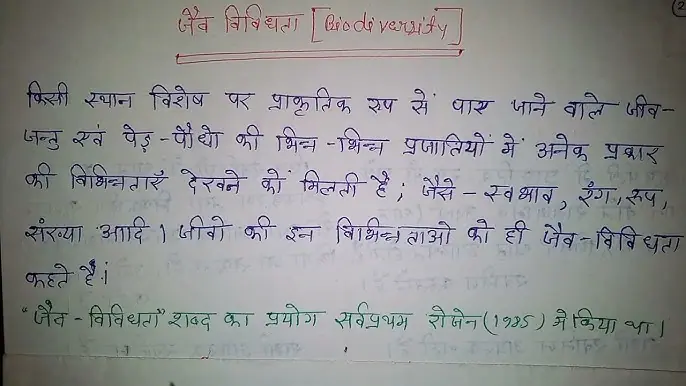 जैव विविधता [Biodiversity]
किसी स्थान विशेष पर प्राकृतिक रुप सें पाए जाने वाले जीव-
जन्तु एवं पेड़-पौधो की भिन्न-भिन्न प्रजातियों में अनेक प्रकार
की विभिन्नताएँ देखने कों मिलती है; जैसे - स्वभाव, रंग, रूप,
संख्या आदि। जीवो की इन विभिन्नताओ को ही जैव-विविधता
कहते है।
"जैव-विविधता" शब्द का प्रयोग सर्वप्रथम रोजेन (1985) मे किया था।